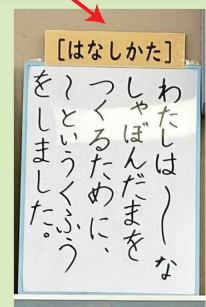 [はなしかた]
わたしは〜な
しゃぼんだまを
つくるために、
〜というくふう
をしました。